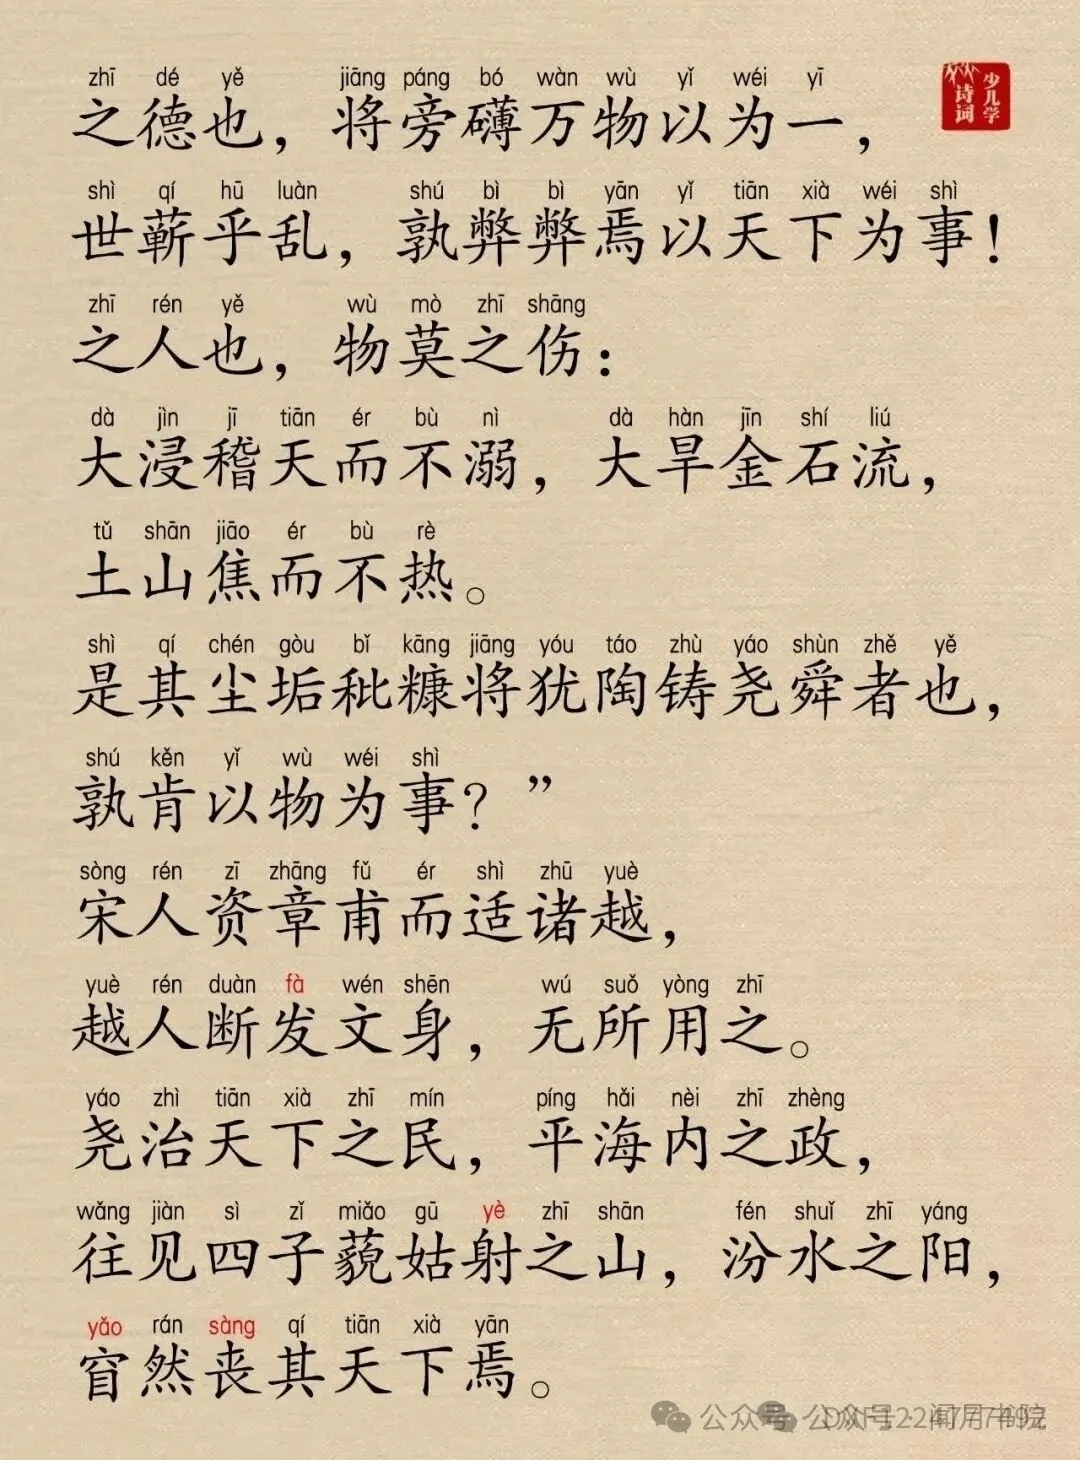 zhī dé yě jiāng páng bó wàn wù yǐ wéi yī
之德也，将旁礴万物以为一，
少儿学
诗词
shì qí hū luàn shú bì bì yān yǐ tiān xià wéi shì
世蕲乎乱，孰弊弊焉以天下为事！
zhī rén yě wù mò zhī shāng
之人也，物莫之伤：
dà jìn jī tiān ér bù nì dà hàn jīn shí liú
大浸稽天而不溺，大旱金石流，
tǔ shān jiāo ér bù rè
土山焦而不热。
shì qí chén gòu bǐ kāng jiāng yóu táo zhù yáo shùn zhě yě
是其尘垢秕糠将犹陶铸尧舜者也，
shú kěn yǐ wù wéi shì
孰肯以物为事？”
sòng rén zī zhāng fǔ ér shì zhū yuè
宋人资章甫而适诸越，
yuè rén duàn fà wén shēn wú suǒ yòng zhī
越人断发文身，无所用之。
yáo zhì tiān xià zhī mín píng hǎi nèi zhī zhèng
尧治天下之民，平海内之政，
wǎng jiàn sì zǐ miǎo gū yè zhī shān fén shuǐ zhī yáng
往见四子藐姑射之山，汾水之阳，
yǎo rán sàng qí tiān xià yān
窅然丧其天下焉。
公众号 公众号